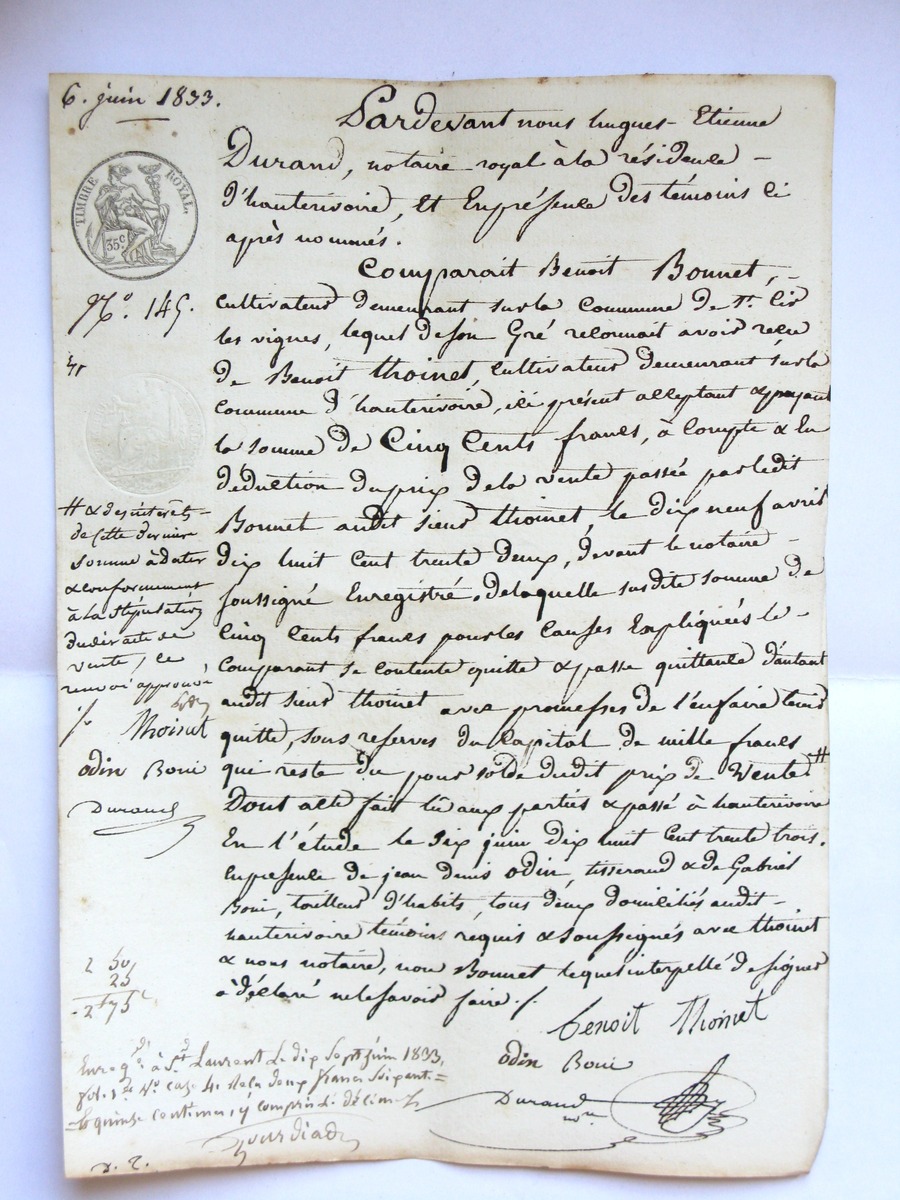 6. juin 1833.
TIMBRE ROYAL.
35c.
No. 145.
Pardevant nous hugues-Etienne
Durand, notaire royal à la résidence
d'hauterivoire, et En présence des témoins ci
après nommés.
Comparait Benoit Bonnet,
Cultivateur demeurant sur la Commune de St. Cir
les vignes, lequel de son Gré reconnait avoir reçu
de Benoit thoinet, Cultivateur demeurant sur la
Commune d'hauterivoire, ici présent acceptant & payant
la somme de Cinq Cents francs, à Compte & En
déduction du prix de la vente passée par ledit
Bonnet audit sieur thoinet, le dix neuf avril
dix huit Cent trente deux, devant le notaire
soussigné Enregistré. de laquelle susdite somme de
Cinq Cents francs pour les Causes Expliquées le
Comparant se Contente quitte & passe quittance d'autant
audit sieur thoinet avec promesses de l'en faire tenir
quitte, sous reserves du Capital de mille francs
qui reste du pour solde dudit prix de Vente #
Dont acte fait lû aux parties & passé à hauterivoire
En l'étude le six juin dix huit Cent trente trois.
En présence de jean denis odin, tisserand & de Gabriel
Boni, tailleur d'habits, tous deux domiciliés audit
hauterivoire témoins requis & soussignés avec thoinet
& nous notaire, non Bonnet lequel interpellé de signer
à déclaré ne le savoir faire ./.
benoit thoinet
odin Boni
Durand
nre.
# & des intérêts
de Cette dernière
somme à dater
& conformement
à la stipulation
dudit acte de
vente, ce
renvoi approuvé
./.
thoinet
odin Boni
Durand
2 50
25
2f 75c
Enregé. à St. Laurent le dix sept juin 1833,
fol. 1 Vo. Case 4. Reçu deux francs soixante
quinze centimes, y compris le décime